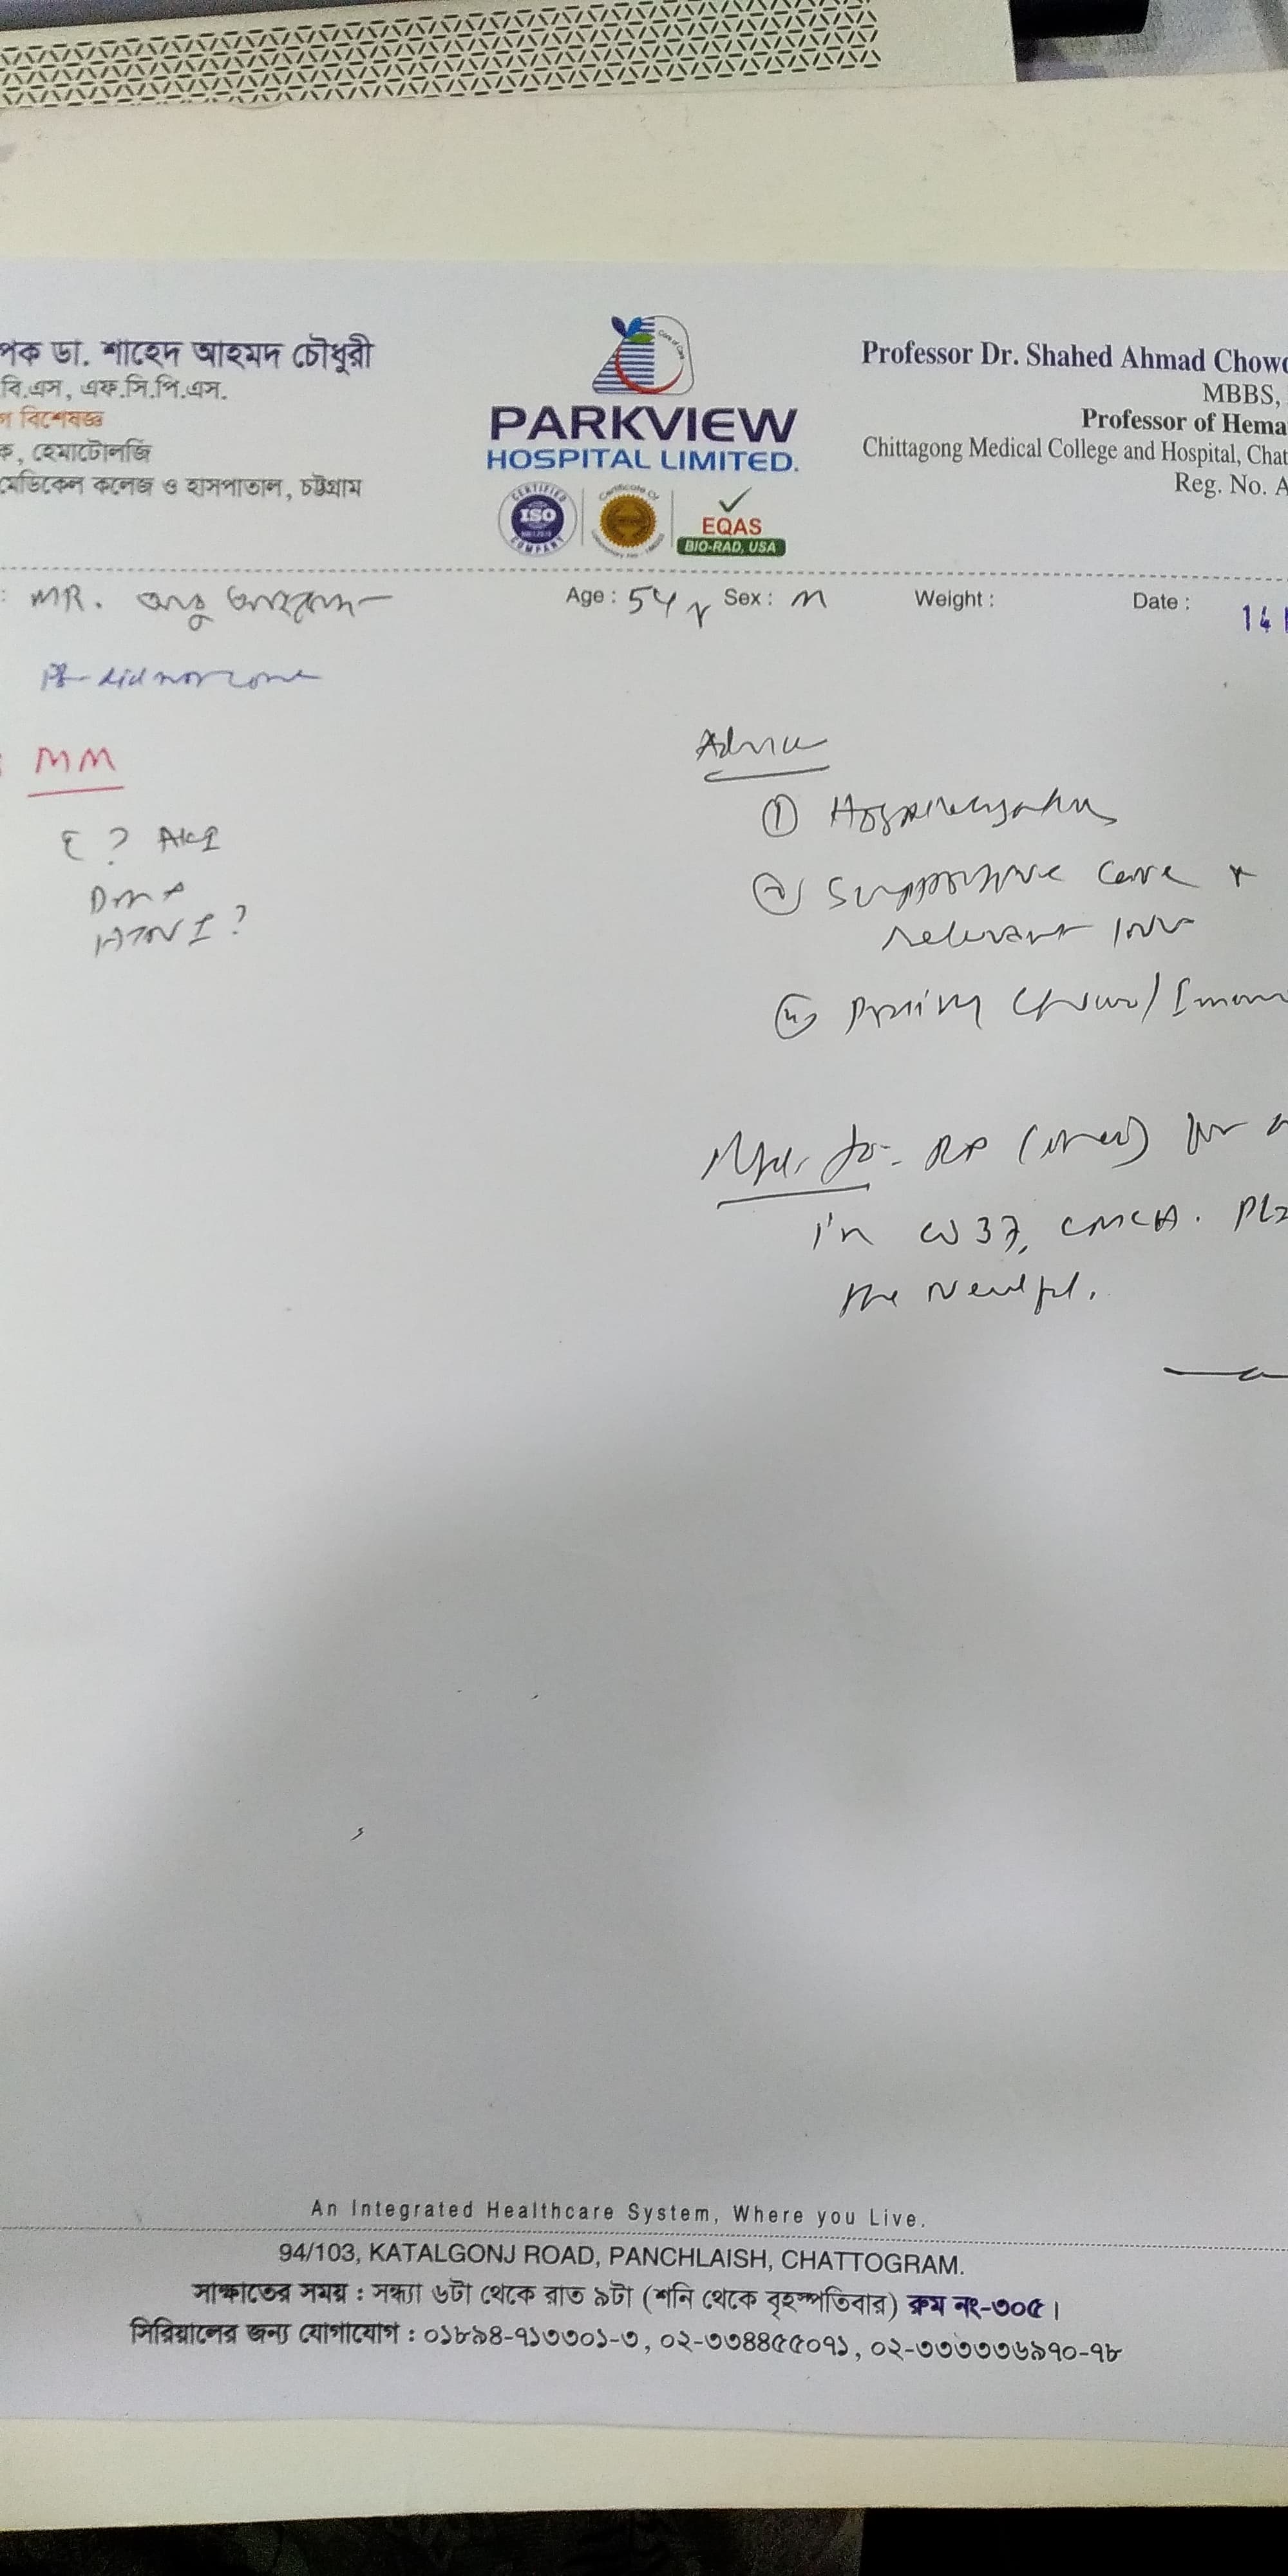 পক ডা. শাহেদ আহমদ চৌধুরী
বি.এস, এফ.সি.পি.এস.
গ বিশেষজ্ঞ
ক, হেমাটোলজি
মেডিকেল কলেজ ও হাসপাতাল, চট্টগ্রাম
PARKVIEW
HOSPITAL LIMITED.
CERTIFIED
ISO
COMPANY
Certificate Of
EQAS
BIO-RAD, USA
Professor Dr. Shahed Ahmad Chow
MBBS,
Professor of Hema
Chittagong Medical College and Hospital, Chat
Reg. No. A
: MR. আবু
Age : 54 y Sex : M Weight : Date : 14
Pt did not come
MM
? AKI
DM
HTN ?
Advice
① Hospitalization
② Supportive care +
relevant Inv
Refer to - RP (
in W 37, CMCH. Plz
the needful.
An Integrated Healthcare System, Where you Live.
94/103, KATALGONJ ROAD, PANCHLAISH, CHATTOGRAM.
সাক্ষাতের সময় : সন্ধ্যা ৬টা থেকে রাত ৯টা (শনি থেকে বৃহস্পতিবার) রুম নং-৩০৫।
সিরিয়ালের জন্য যোগাযোগ : ০১৮৯৪-৭১৩৩০১-৩, ০২-৩৩৪৪৫৫০৭১, ০২-৩৩৩৩৩৬৯৭০-৭৮